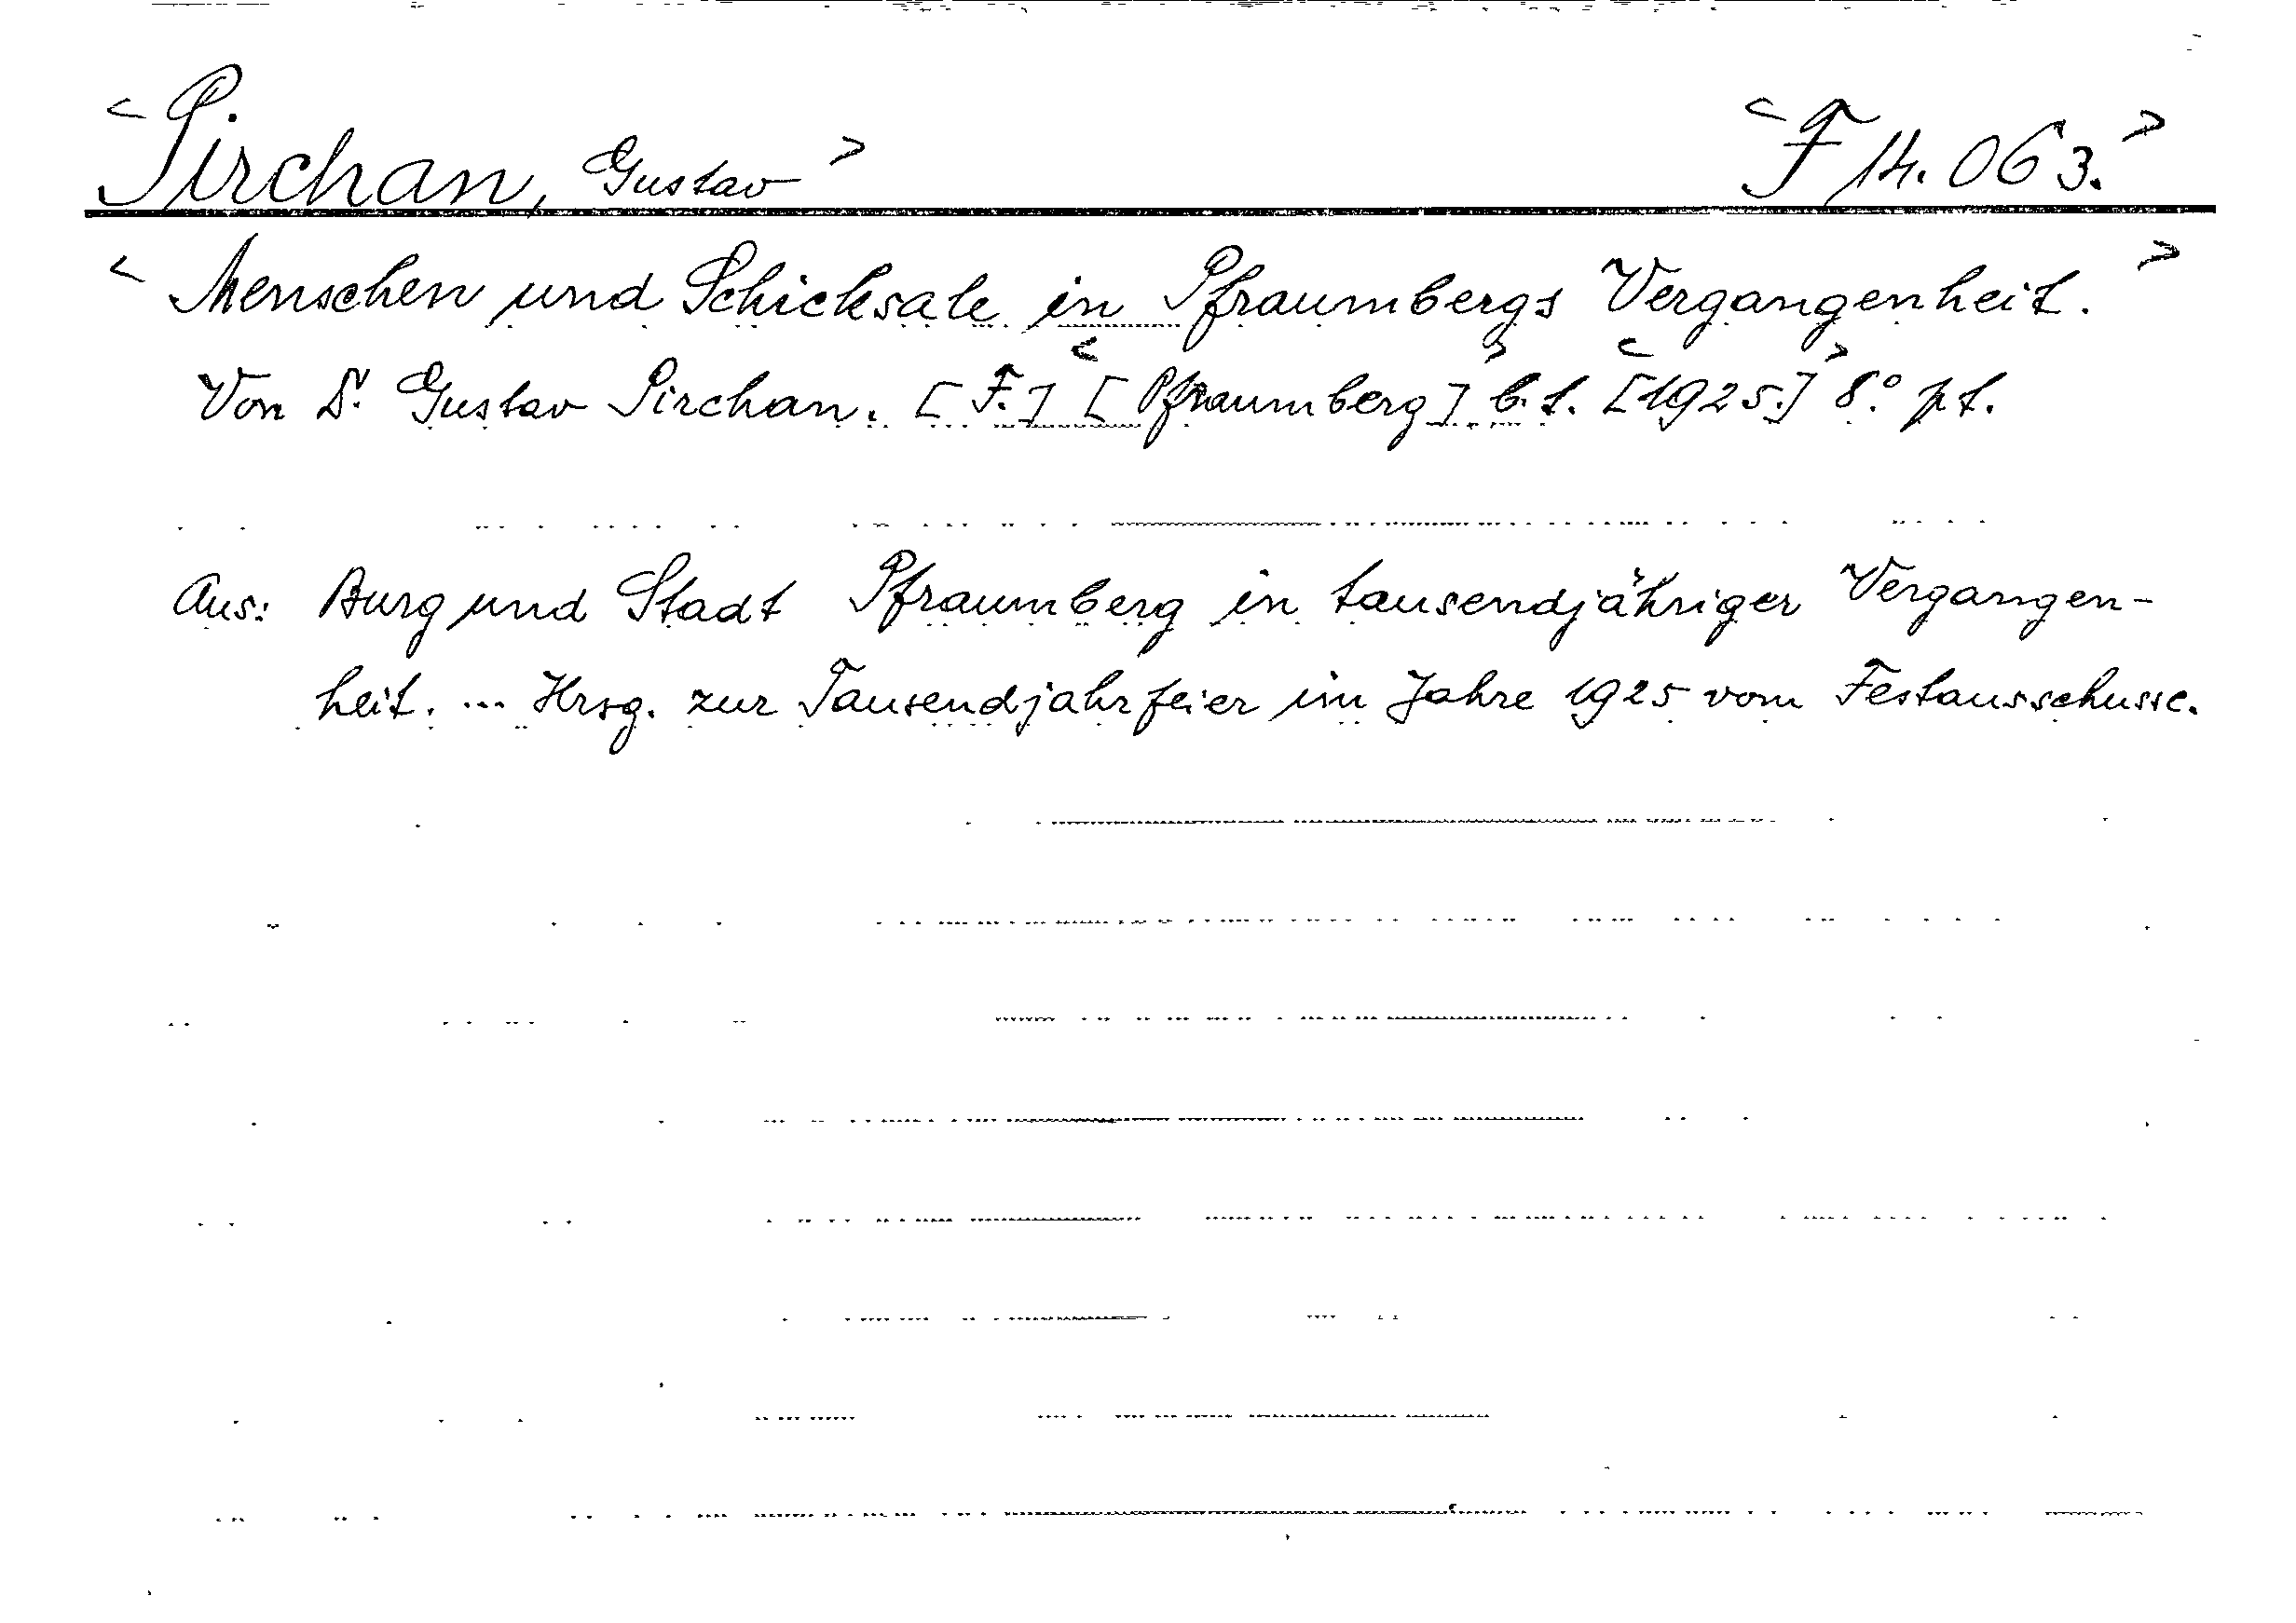 <Pirchan, Gustav> <F 14.063.>
<Menschen und Schicksale in Pfraumbergs Vergangenheit.>
Von Dr. Gustav Pirchan. [F.] <[Pfraumberg]> b. t. <[1925.]> 8° pt.
Aus: Burg und Stadt Pfraumberg in tausendjähriger Vergangen-
heit. ... Hrsg. zur Tausendjahrfeier im Jahre 1925 vom Festausschusse.